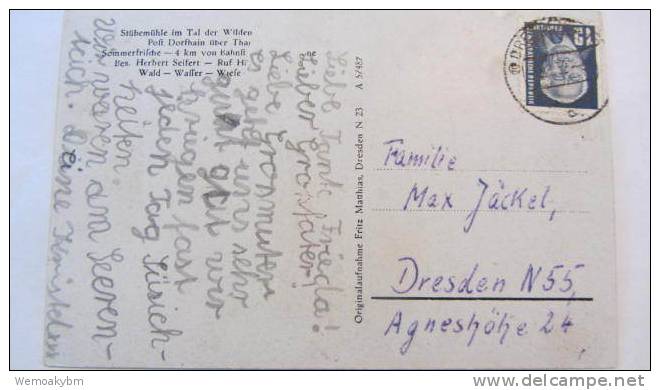 Stübemühle im Tal der Wilden
Post Dorfhain über Thar
Sommerfrische — 4 km von Bahnst
Bes. Herbert Seifert — Ruf H
Wald — Wasser — Wiese
Liebe Tante Frieda!
Lieber Grosfater!
Liebe Grosmutter
es geht uns sehr
gut wir
krigen fast
jeden Tag
wir waren am
Deine
Originalaufnahme Fritz Matthias, Dresden N 23 A 5/487
Familie
Max Jäckel,
Dresden N55,
Agneshöhe 24
Wemoakybm
delcampe.net